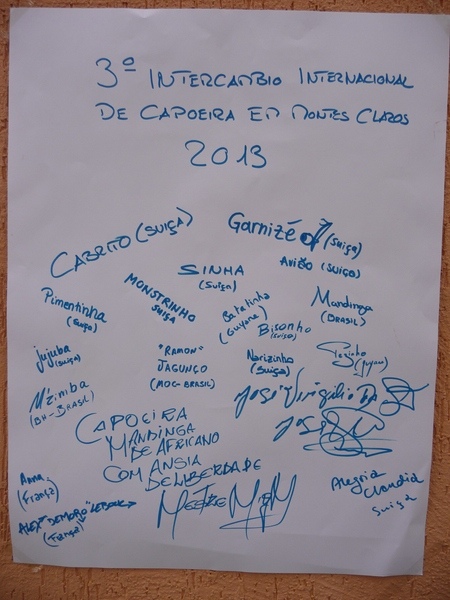 3º INTERCAMBIO INTERNACIONAL
DE CAPOEIRA EM MONTES CLAROS
2013
CABRITO (SUIÇA)
Garnizé (SUIÇA)
SINHA
(SUIÇA)
AVIÃO (SUIÇA)
Pimentinha
(SUIÇA)
MONSTRINHO
SUIÇA
Batatinha
(Guyane)
Bisonho
(SUIÇA)
Mandinga
(BRASIL)
Jujuba
(SUIÇA)
"RAMON"
JAGUNÇO
(MOC-BRASIL)
Narizinho
(SUIÇA)
M'zimba
(BH-BRASIL)
JOSÉ
CAPOEIRA
MANDINGA
DE AFRICANO
COM ANSIA
DE LIBERDADE
Anna
(França)
ALEX
(França)
MESTRE
Alegria
Claudia
Suiça